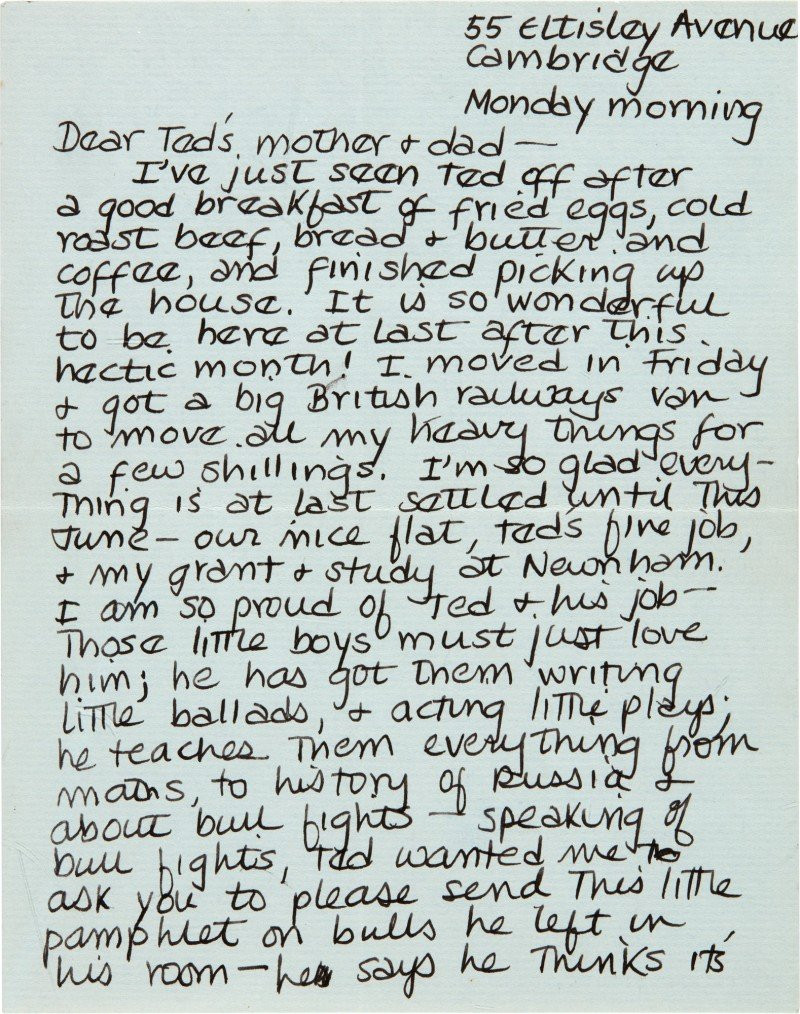 55 Eltisley Avenue
Cambridge
Monday morning
Dear Ted's mother & dad —
I've just seen Ted off after
a good breakfast of fried eggs, cold
roast beef, bread & butter and
coffee, and finished picking up
the house. It is so wonderful
to be here at last after this
hectic month! I moved in Friday
& got a big British railways van
to move all my heavy things for
a few shillings. I'm so glad every-
thing is at last settled until this
June — our nice flat, Ted's fine job,
& my grant & study at Newnham.
I am so proud of Ted & his job —
Those little boys must just love
him; he has got them writing
little ballads, & acting little plays;
he teaches them everything from
maths, to history of Russia &
about bull fights — speaking of
bull fights, Ted wanted me to
ask you to please send this little
pamphlet on bulls he left in
his room — he says he thinks it's